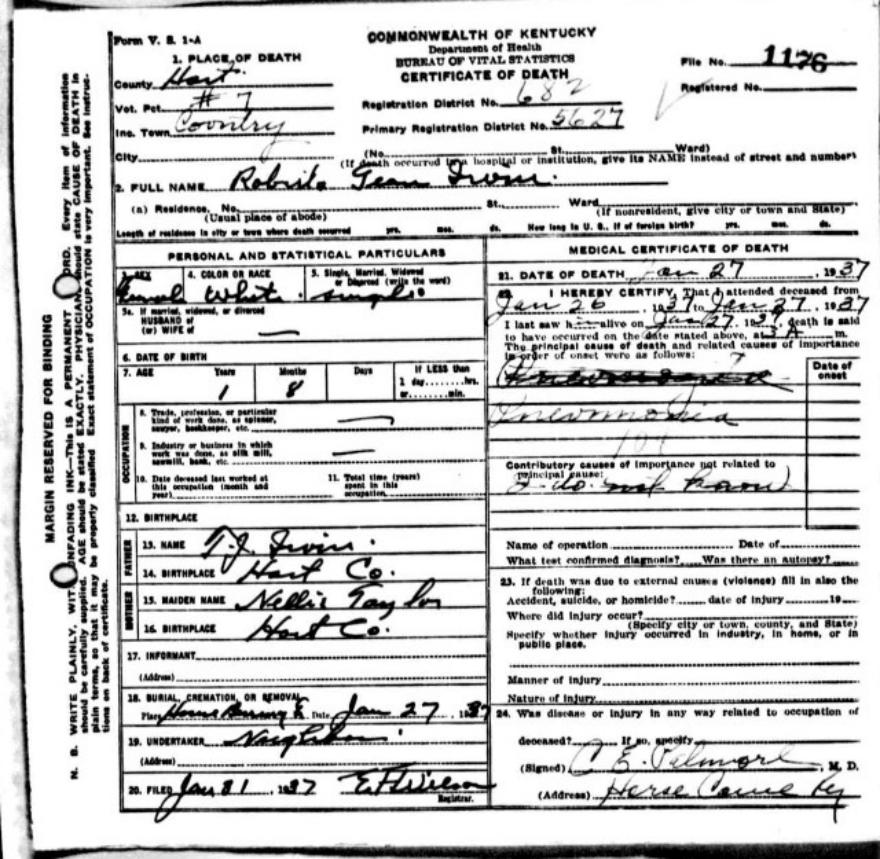 Form V. S. 1-A
COMMONWEALTH OF KENTUCKY
Department of Health
BUREAU OF VITAL STATISTICS
CERTIFICATE OF DEATH
File No. 1176
Registered No.
1. PLACE OF DEATH
County Hart
Vot. Pct. # 7
Inc. Town Country
City
Registration District No. 682
Primary Registration District No. 5627
(No. St. Ward)
(If death occurred in a hospital or institution, give its NAME instead of street and number)
2. FULL NAME Roberta Jean Irvin
(a) Residence. No. St. Ward
(Usual place of abode) (If nonresident, give city or town and State)
Length of residence in city or town where death occurred yrs. mos. ds. How long in U. S., if of foreign birth? yrs. mos. ds.
PERSONAL AND STATISTICAL PARTICULARS
3. SEX 4. COLOR OR RACE 5. Single, Married, Widowed
or Divorced (write the word)
Female White single
5a. If married, widowed, or divorced
HUSBAND of
(or) WIFE of
6. DATE OF BIRTH
7. AGE Years Months Days If LESS than
1 day........hrs.
or........min.
1 8
OCCUPATION
8. Trade, profession, or particular
kind of work done, as spinner,
sawyer, bookkeeper, etc.
9. Industry or business in which
work was done, as silk mill,
sawmill, bank, etc.
10. Date deceased last worked at
this occupation (month and
year)
11. Total time (years)
spent in this
occupation
12. BIRTHPLACE
FATHER
13. NAME T. J. Irvin
14. BIRTHPLACE Hart Co.
MOTHER
15. MAIDEN NAME Nellie Taylor
16. BIRTHPLACE Hart Co.
17. INFORMANT
(Address)
18. BURIAL, CREMATION, OR REMOVAL
Place Date Jan 27, 1937
19. UNDERTAKER Neighbors
(Address)
20. FILED Jan 31, 1937 E H Wilson
Registrar.
MEDICAL CERTIFICATE OF DEATH
21. DATE OF DEATH Jan 27, 1937
22. I HEREBY CERTIFY, That I attended deceased from
Jan 26, 1937 to Jan 27, 1937
I last saw h alive on Jan 27, 1937, death is said
to have occurred on the date stated above, at 3 A m.
The principal cause of death and related causes of importance
in order of onset were as follows:
Date of
onset
Pneumonia
Contributory causes of importance not related to
principal cause:
I do not know
Name of operation Date of
What test confirmed diagnosis? Was there an autopsy?
23. If death was due to external causes (violence) fill in also the
following:
Accident, suicide, or homicide? date of injury 19
Where did injury occur?
(Specify city or town, county, and State)
Specify whether injury occurred in industry, in home, or in
public place.
Manner of injury
Nature of injury
24. Was disease or injury in any way related to occupation of
deceased? If so, specify
(Signed) C. E. Palmore, M. D.
(Address) Horse Cave Ky
MARGIN RESERVED FOR BINDING
N. B. WRITE PLAINLY, WITH UNFADING INK—THIS IS A PERMANENT RECORD. Every item of information
should be carefully supplied. AGE should be stated EXACTLY. PHYSICIANS should state CAUSE OF DEATH in
plain terms, so that it may be properly classified. Exact statement of OCCUPATION is very important. See instruc-
tions on back of certificate.